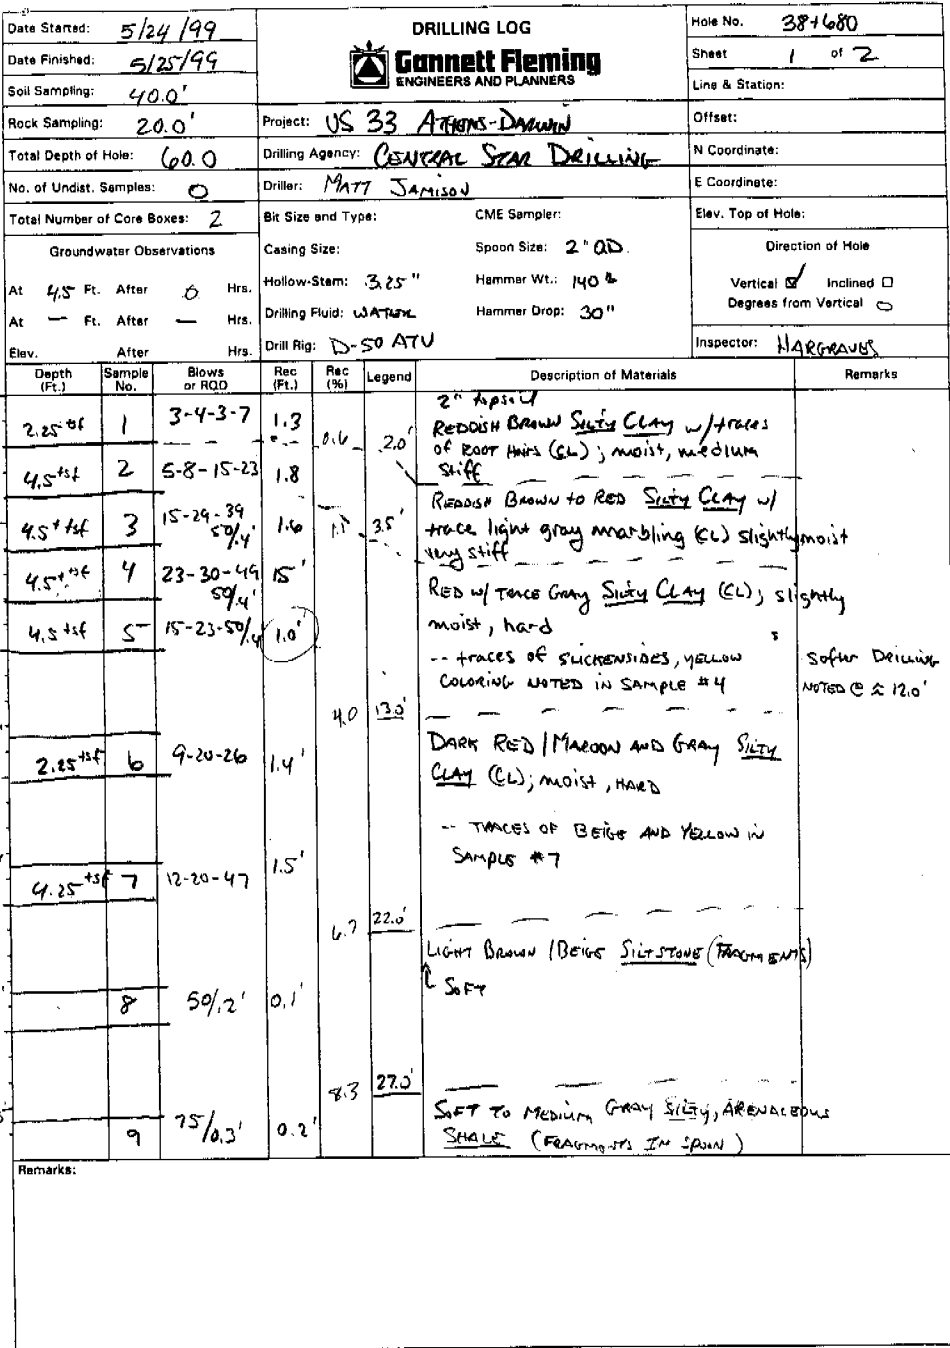 DRILLING LOG
Gannett Fleming
ENGINEERS AND PLANNERS
Date Started: 5/24/99
Date Finished: 5/25/99
Soil Sampling: 40.0'
Rock Sampling: 20.0'
Total Depth of Hole: 60.0
No. of Undist. Samples: 0
Total Number of Core Boxes: 2
Groundwater Observations
At 4.5 Ft. After 0 Hrs.
At — Ft. After — Hrs.
Elev. After Hrs.
Project: US 33 ATHENS-DARWIN
Drilling Agency: CENTRAL STAR DRILLING
Driller: MATT JAMISON
Bit Size and Type: CME Sampler:
Casing Size: Spoon Size: 2" OD.
Hollow-Stem: 3.25" Hammer Wt.: 140 lb
Drilling Fluid: WATER Hammer Drop: 30"
Drill Rig: D-50 ATV
Hole No. 38+680
Sheet 1 of 2
Line & Station:
Offset:
N Coordinate:
E Coordinate:
Elev. Top of Hole:
Direction of Hole
Vertical ☑ Inclined ☐
Degrees from Vertical 0
Inspector: HARGRAVES
Depth (Ft.) Sample No. Blows or RQD Rec (Ft.) Rec (%) Legend Description of Materials Remarks
2" topsoil
2.25 tsf 1 3-4-3-7 1.3
0.6 2.0'
REDDISH BROWN SILTY CLAY w/traces
of ROOT HAIRS (CL); moist, medium
stiff
4.5+tsf 2 5-8-15-23 1.8
REDDISH BROWN to RED SILTY CLAY w/
trace light gray marbling (CL) slightly moist
very stiff
4.5+ tsf 3 15-29-39 50/.4' 1.6 1.1 3.5'
4.5+tsf 4 23-30-49 50/.4' 15'
RED w/ TRACE GRAY SILTY CLAY (CL); slightly
moist, hard
4.5 tsf 5 15-23-50/.4 1.0'
-- traces of SLICKENSIDES, YELLOW
COLORING NOTED IN SAMPLE #4
Softer DRILLING
NOTED @ ≈ 12.0'
4.0 13.0'
DARK RED/MAROON AND GRAY SILTY
CLAY (CL); moist, HARD
2.25 tsf 6 9-20-26 1.4'
-- TRACES OF BEIGE AND YELLOW IN
SAMPLE #7
4.25 tsf 7 12-20-47 1.5'
6.7 22.0'
LIGHT BROWN/BEIGE SILTSTONE (FRAGMENTS)
SOFT
8 50/.2' 0.1'
8.3 27.0'
SOFT TO MEDIUM GRAY SILTY, ARENACEOUS
SHALE (FRAGMENTS IN SPOON)
9 75/0.3' 0.2'
Remarks: